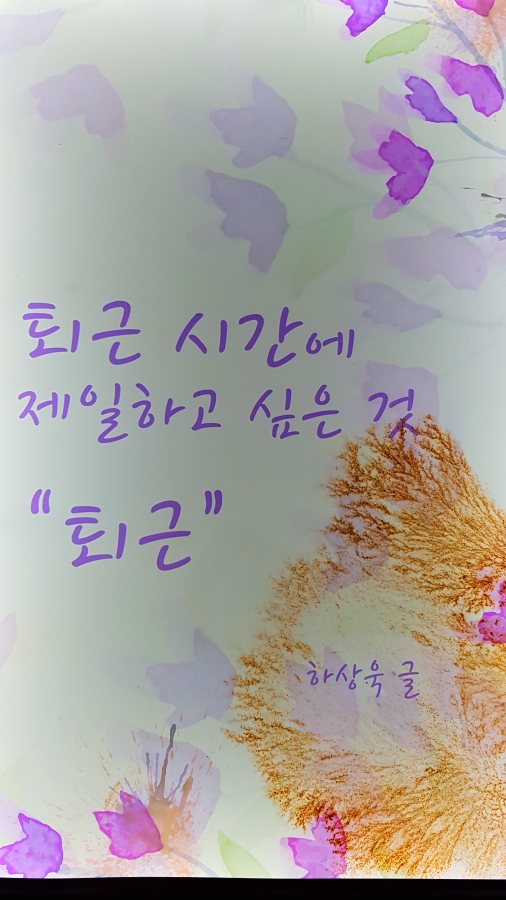 퇴근 시간에
제일하고 싶은 것
"퇴근"
하상욱 글